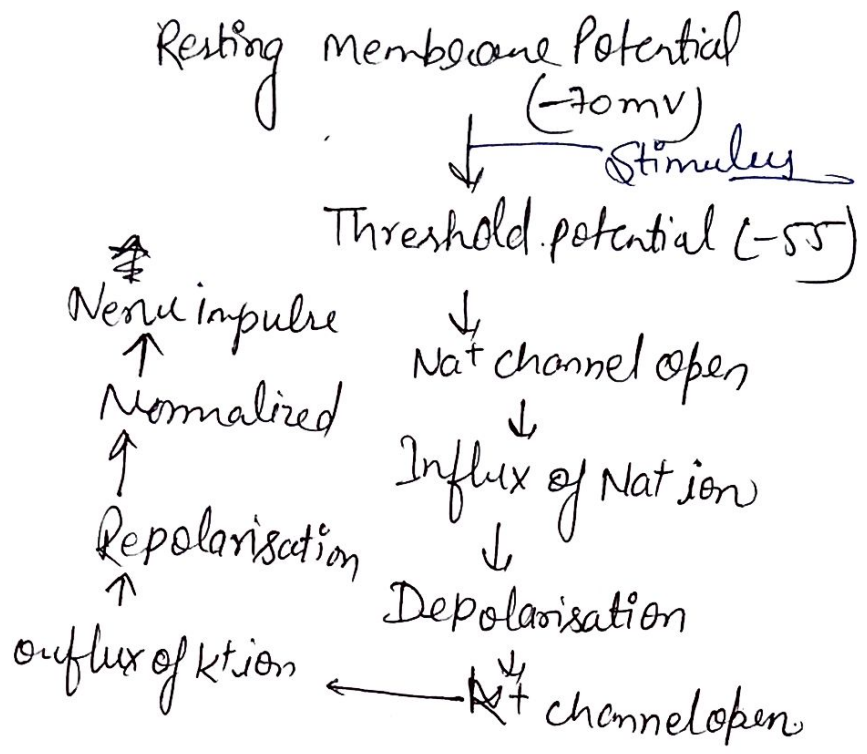 Resting membrane Potential
(-70mV)
Stimulus
Threshold potential (-55)
Na+ channel open
Influx of Na+ ion
Depolarisation
K+ channel open
outflux of K+ ion
Repolarisation
Normalized
Nerve impulse